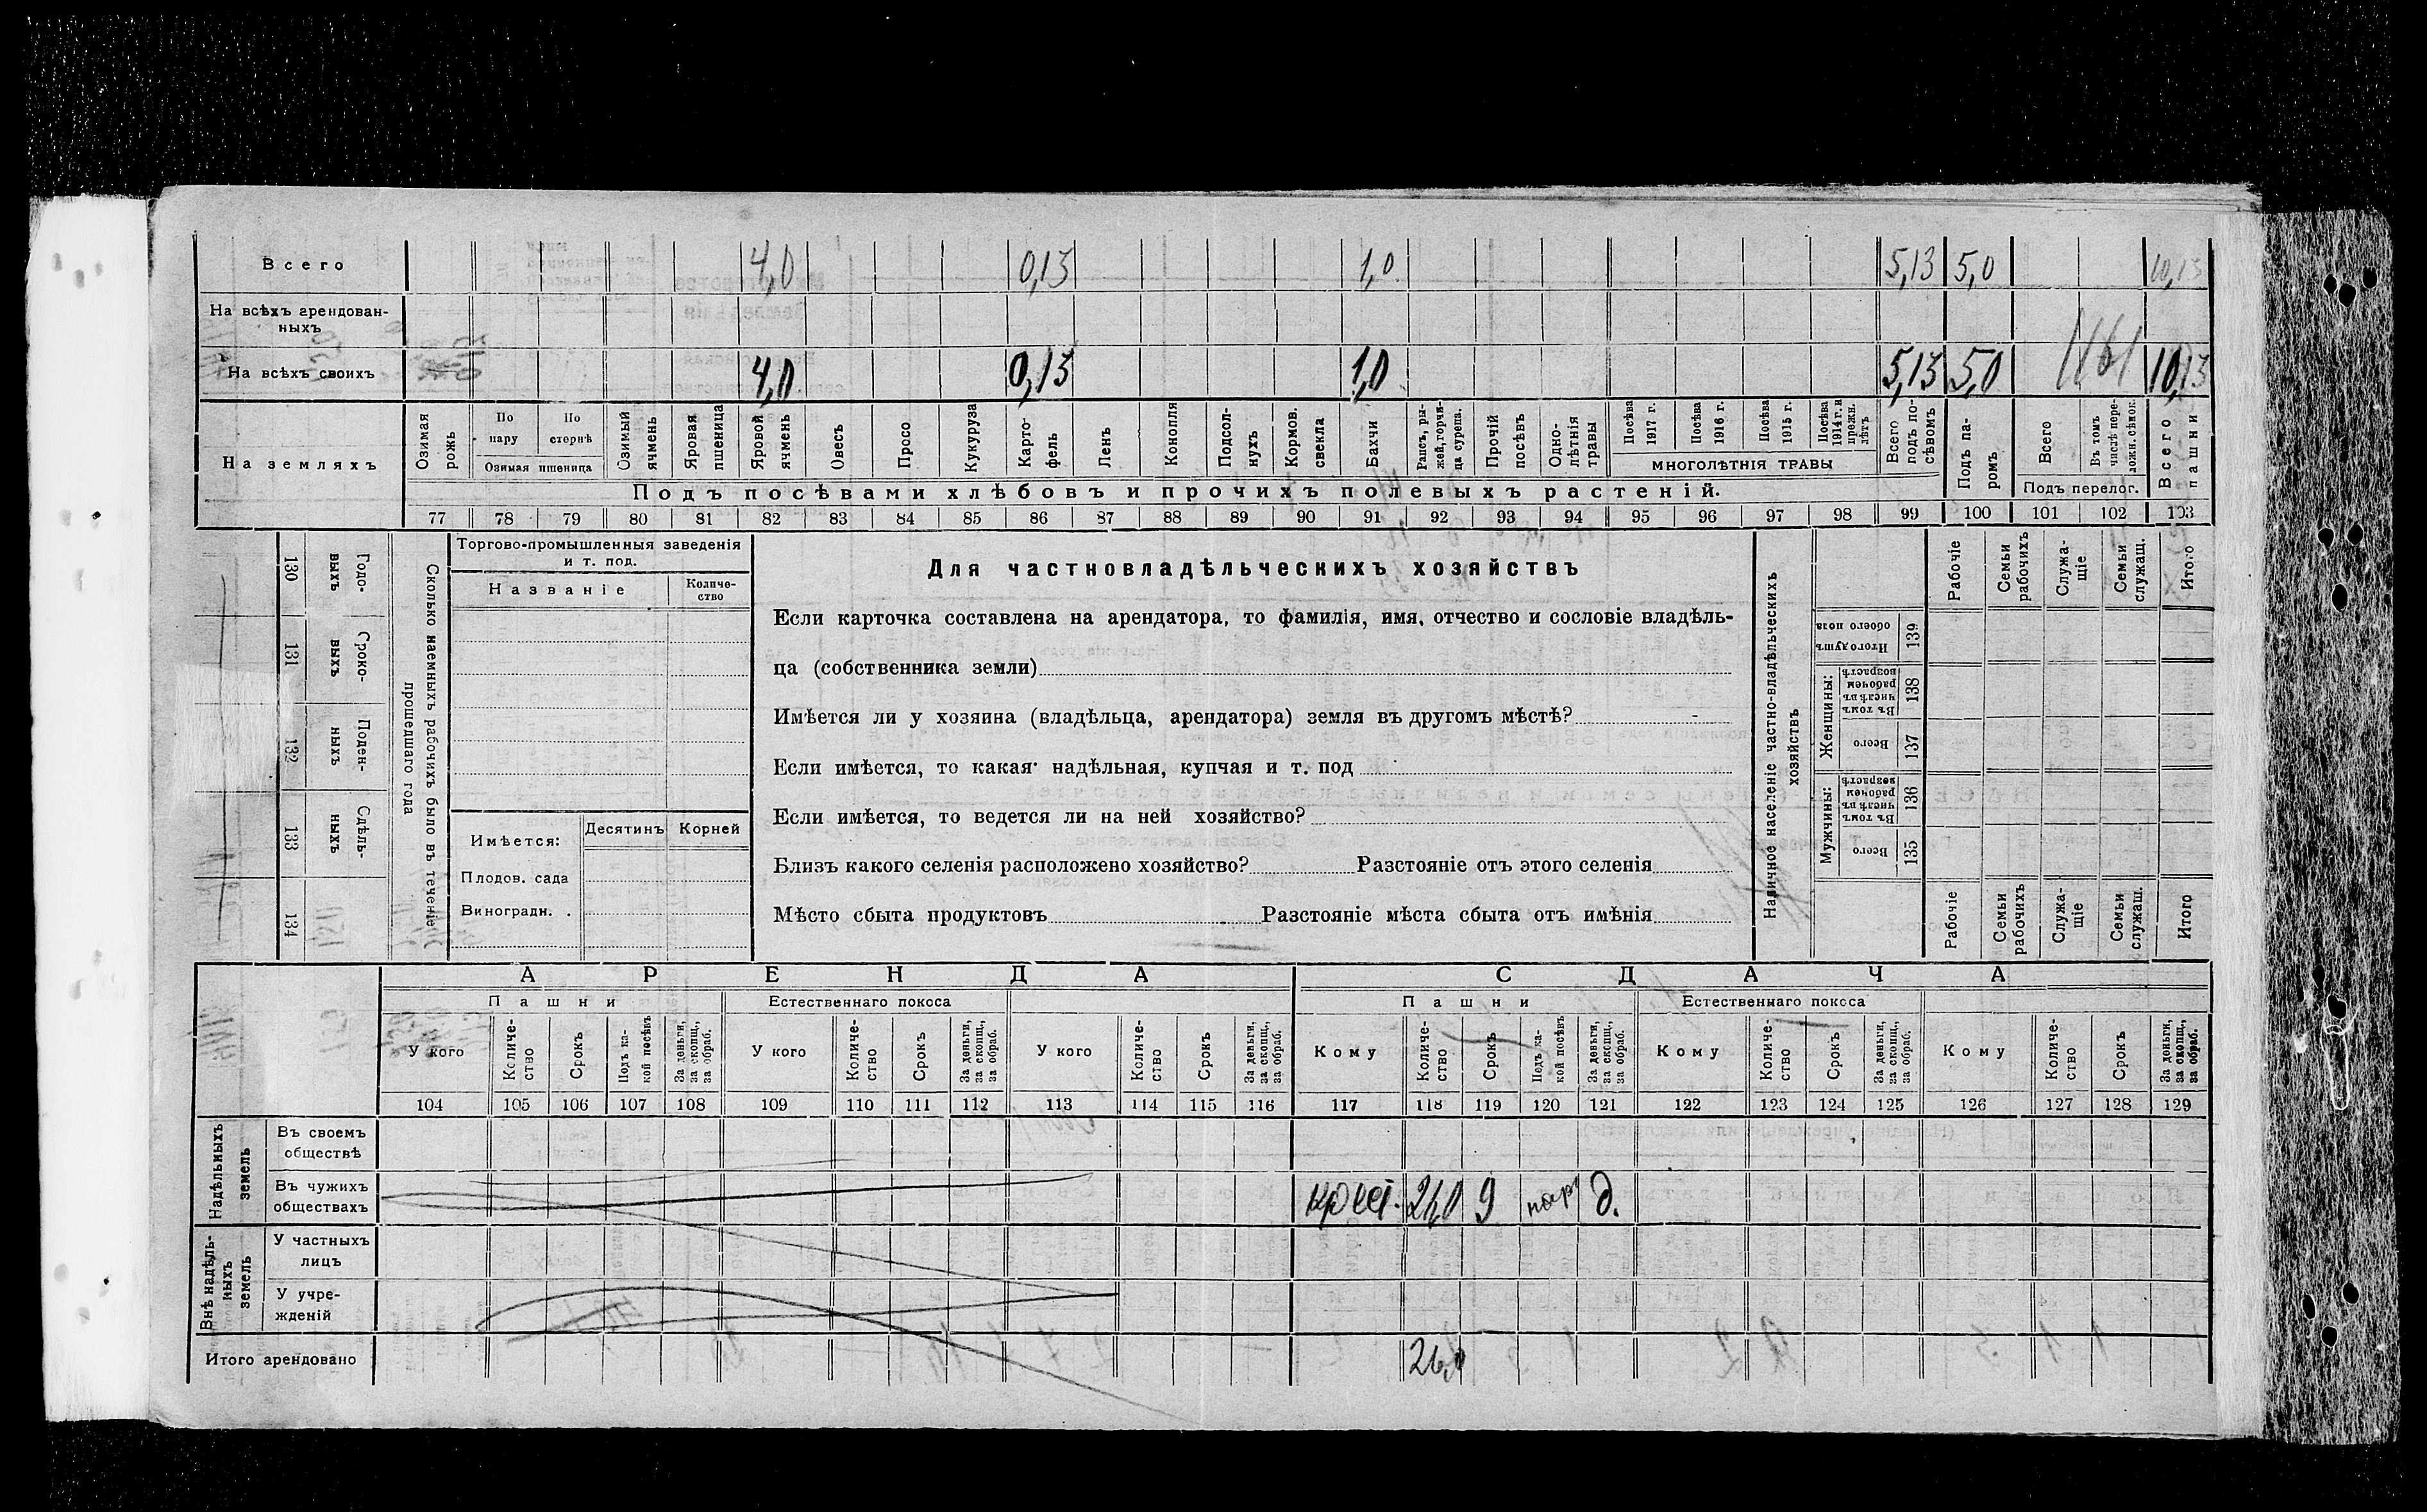 Всего 4,0 0,13 1,0 5,13 5,0 10,13
На всѣхъ арендован-
ныхъ
На всѣхъ своихъ 4,0 0,13 1,0 5,13 5,0 10,13
На земляхъ
Озимая рожь
По пару
По стернѣ
Озимая пшеница
Озимый ячмень
Яровая пшеница
Яровой ячмень
Овесъ
Просо
Кукуруза
Карто-
фель
Ленъ
Конопля
Подсол-
нухъ
Кормов. свекла
Бахчи
Рапсъ, ры-
жей, горчи-
ца сурепа.
Прочій посѣвъ
Одно-
лѣтнія травы
Посѣва 1917 г.
Посѣва 1916 г.
Посѣва 1915 г.
Посѣва 1914 г. и прежн. лѣтъ
МНОГОЛѢТНІЯ ТРАВЫ
Всего подъ по-
сѣвомъ
Подъ па-
ромъ
Всего
Въ томъ числѣ пере-
ложн. сѣнок.
Подъ перелог.
Всего пашни
Подъ посѣвами хлѣбовъ и прочихъ полевыхъ растеній.
77 78 79 80 81 82 83 84 85 86 87 88 89 90 91 92 93 94 95 96 97 98 99 100 101 102 103
130 Годо-
выхъ
131 Сроко-
выхъ
132 Поден-
ныхъ
133 Сдѣль-
ныхъ
134
Сколько наемныхъ рабочихъ было въ теченіе
прошедшаго года
Торгово-промышленныя заведенія
и т. под.
Названіе
Количе-
ство
Имѣется:
Десятинъ
Корней
Плодов. сада
Виноградн. .
Для частновладѣльческихъ хозяйствъ
Если карточка составлена на арендатора, то фамилія, имя, отчество и сословіе владѣль-
ца (собственника земли)
Имѣется ли у хозяина (владѣльца, арендатора) земля въ другомъ мѣстѣ?
Если имѣется, то какая· надѣльная, купчая и т. под
Если имѣется, то ведется ли на ней хозяйство?
Близъ какого селенія расположено хозяйство? Разстояніе отъ этого селенія
Мѣсто сбыта продуктовъ Разстояніе мѣста сбыта отъ имѣнія
Наличное населеніе частно-владѣльческихъ
хозяйствъ
Рабочіе
Семьи рабочихъ
Служа-
щіе
Семьи служащ.
Итого
Итого душъ обоего пола 139
Женщины:
Въ томъ числѣ въ рабочемъ возрастѣ 138
Всего 137
Мужчины:
Въ томъ числѣ въ рабочемъ возрастѣ 136
Всего 135
Рабочіе
Семьи рабочихъ
Служа-
щіе
Семьи служащ.
Итого
АРЕНДА
СДАЧА
Пашни
Естественнаго покоса
Пашни
Естественнаго покоса
У кого
Количе-
ство
Срокъ
Подъ ка-
кой посѣвъ
За деньги, за скопщ., за обраб.
У кого
Количе-
ство
Срокъ
За деньги, за скопщ., за обраб.
У кого
Количе-
ство
Срокъ
За деньги, за скопщ., за обраб.
Кому
Количе-
ство
Срокъ
Подъ ка-
кой посѣвъ
За деньги, за скопщ., за обраб.
Кому
Количе-
ство
Срокъ
За деньги, за скопщ., за обраб.
Кому
Количе-
ство
Срокъ
За деньги, за скопщ., за обраб.
104 105 106 107 108 109 110 111 112 113 114 115 116 117 118 119 120 121 122 123 124 125 126 127 128 129
Надѣльныхъ земель
Въ своемъ
обществѣ
Въ чужихъ
обществахъ
крест. 9 д.
Внѣ надѣль-
ныхъ земель
У частныхъ
лицъ
У учре-
жденій
Итого арендовано